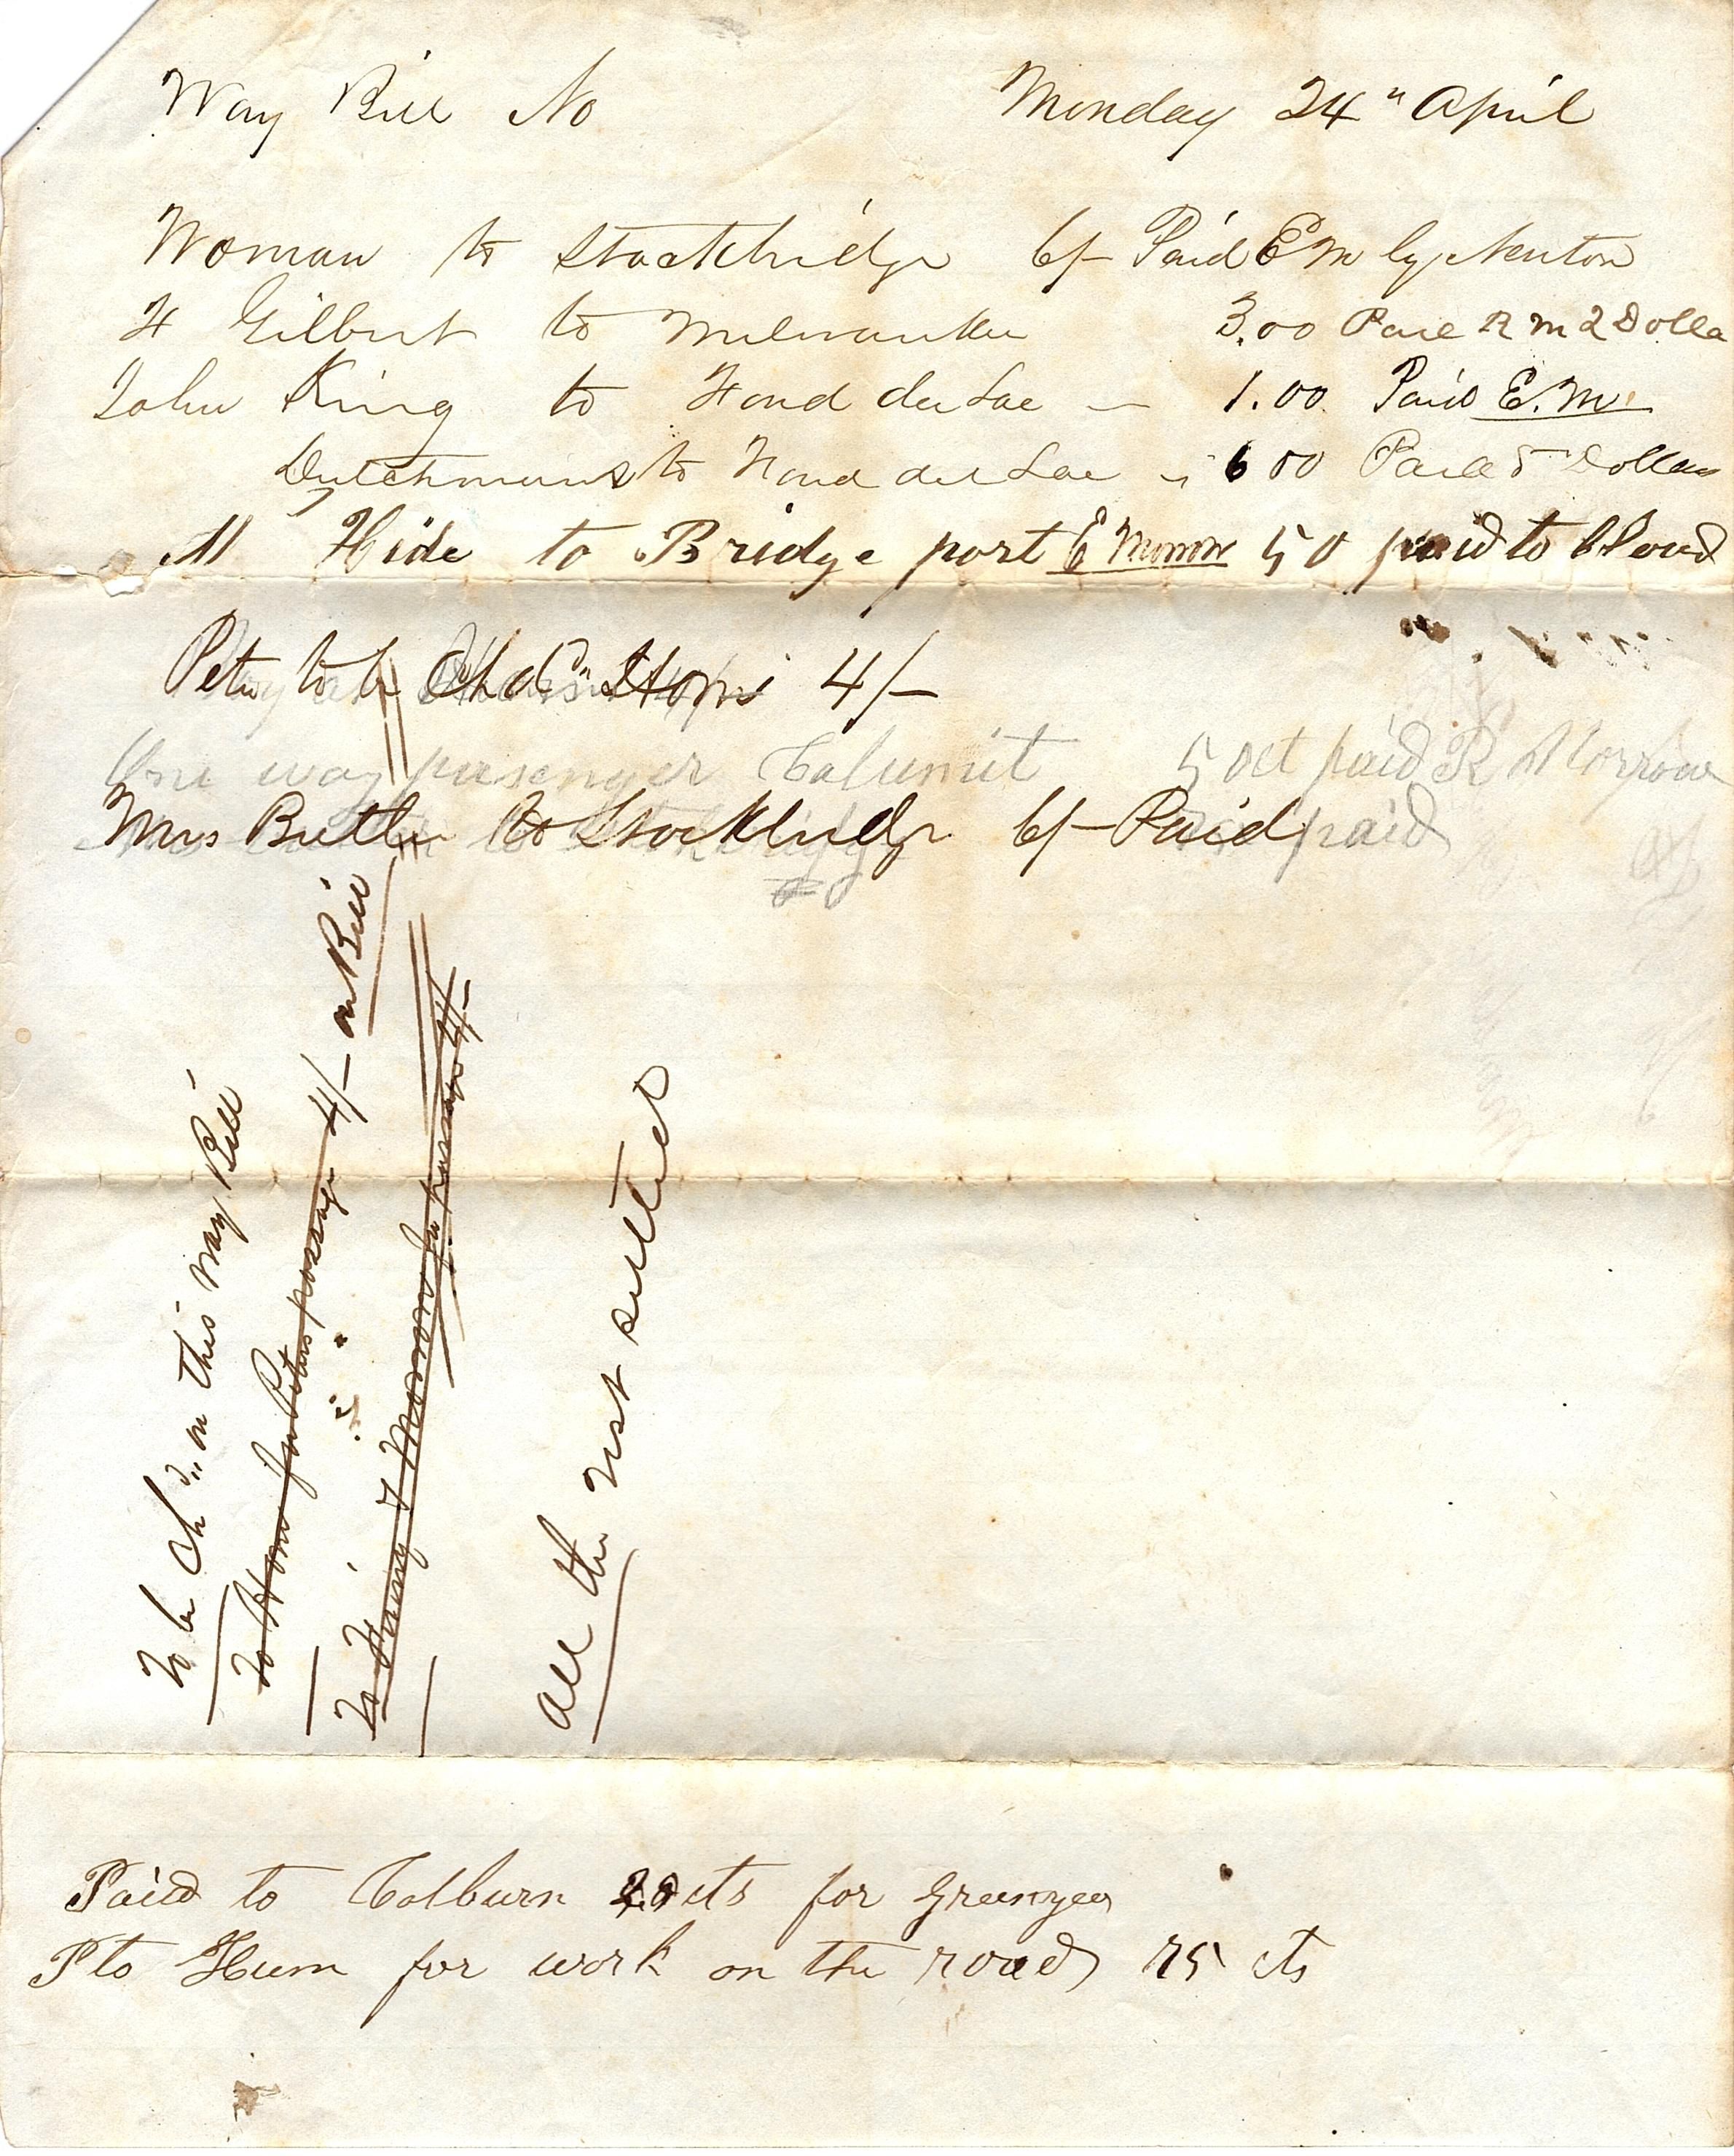 Way Bill No Monday 24" April
Woman to Stockbridge 6/- Paid E M by Newton
H Gilbert to Milwaukee 3.00 Paid R M 2 Dolla
John King to Fond du Lac - 1.00 Paid E.M.
Dutchmans to Fond du Lac 6 00 Paid 5 Dollars
M Hide to Bridge port E Morrow 50 paid to
Peter to be Chd 4/-
One way pasenger Calumit 50ct paid R Morrow
Mrs Butler to Stockbridge 6/- Paid paid
To be Chd on this way Bill
To Horn for Peters passage 4/- on Bill
To Morrow for passage 4/-
All the rest settled
Paid to Colburn cts for
P to Hum for work on the road 75 cts